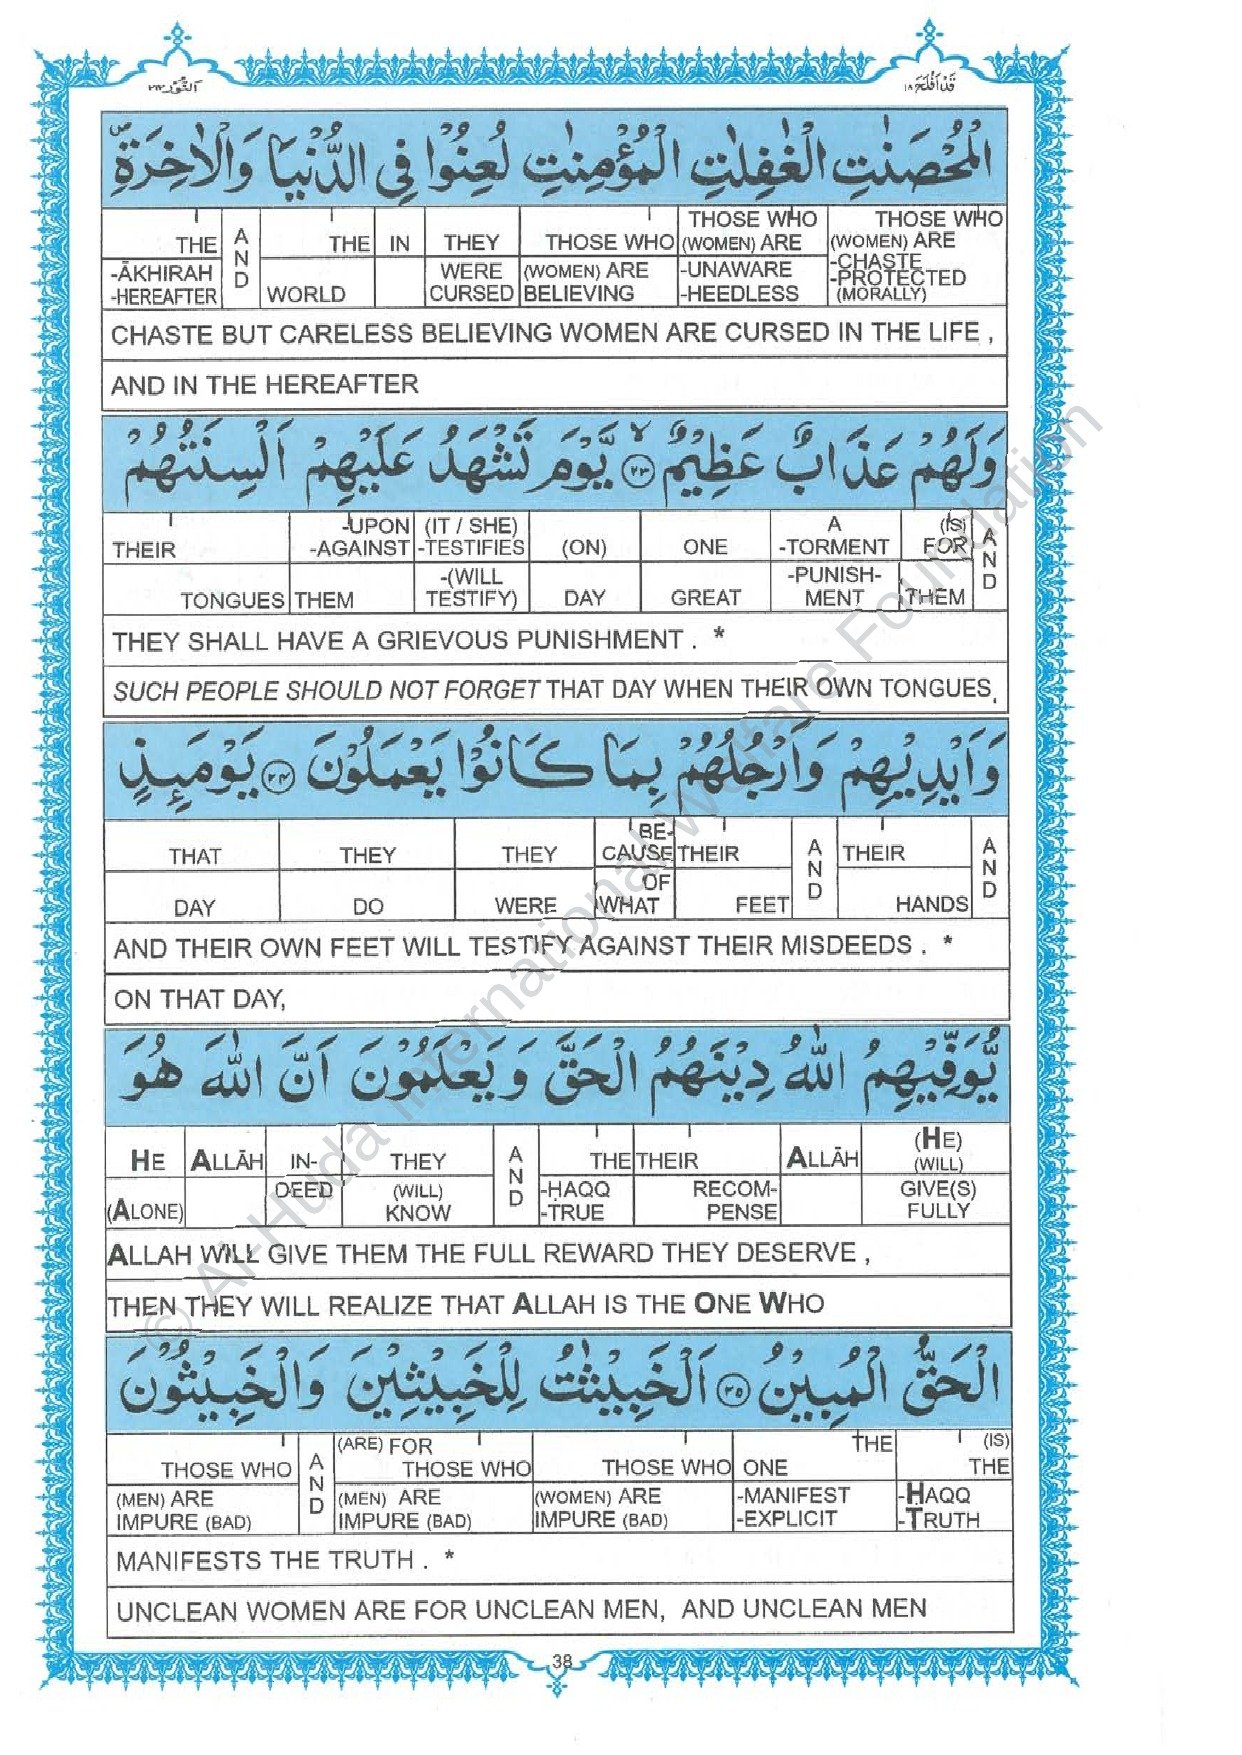 قَدْ اَفْلَحَ ١٨
اَلنُّوْر ٢٤
الْمُحْصَنٰتِ الْغٰفِلٰتِ الْمُؤْمِنٰتِ لُعِنُوْا فِي الدُّنْيَا وَالْاٰخِرَةِ ۪
THE -ĀKHIRAH -HEREAFTER | AND | THE WORLD | IN | THEY WERE CURSED | THOSE WHO (WOMEN) ARE BELIEVING | THOSE WHO (WOMEN) ARE -UNAWARE -HEEDLESS | THOSE WHO (WOMEN) ARE -CHASTE -PROTECTED (MORALLY)
CHASTE BUT CARELESS BELIEVING WOMEN ARE CURSED IN THE LIFE ,
AND IN THE HEREAFTER
وَلَهُمْ عَذَابٌ عَظِيْمٌ ۙ ٢٣ يَّوْمَ تَشْهَدُ عَلَيْهِمْ اَلْسِنَتُهُمْ
THEIR TONGUES | -UPON -AGAINST THEM | (IT / SHE) -TESTIFIES -(WILL TESTIFY) | (ON) DAY | ONE GREAT | A -TORMENT -PUNISH-MENT | (IS) FOR THEM | AND
THEY SHALL HAVE A GRIEVOUS PUNISHMENT . *
SUCH PEOPLE SHOULD NOT FORGET THAT DAY WHEN THEIR OWN TONGUES,
وَاَيْدِيْهِمْ وَاَرْجُلُهُمْ بِمَا كَانُوْا يَعْمَلُوْنَ ٢٤ يَوْمَئِذٍ
THAT DAY | THEY DO | THEY WERE | BE-CAUSE OF WHAT | THEIR FEET | AND | THEIR HANDS | AND
AND THEIR OWN FEET WILL TESTIFY AGAINST THEIR MISDEEDS . *
ON THAT DAY,
يُّوَفِّيْهِمُ اللّٰهُ دِيْنَهُمُ الْحَقَّ وَيَعْلَمُوْنَ اَنَّ اللّٰهَ هُوَ
HE (ALONE) | ALLĀH | IN-DEED | THEY (WILL) KNOW | AND | THE -ḤAQQ -TRUE | THEIR RECOM-PENSE | ALLĀH | (HE) (WILL) GIVE(S) FULLY
ALLAH WILL GIVE THEM THE FULL REWARD THEY DESERVE ,
THEN THEY WILL REALIZE THAT ALLAH IS THE ONE WHO
الْحَقُّ الْمُبِيْنُ ٢٥ اَلْخَبِيْثٰتُ لِلْخَبِيْثِيْنَ وَالْخَبِيْثُوْنَ
THOSE WHO (MEN) ARE IMPURE (BAD) | AND | (ARE) FOR THOSE WHO (MEN) ARE IMPURE (BAD) | THOSE WHO (WOMEN) ARE IMPURE (BAD) | THE ONE -MANIFEST -EXPLICIT | (IS) THE -HAQQ -TRUTH
MANIFESTS THE TRUTH . *
UNCLEAN WOMEN ARE FOR UNCLEAN MEN, AND UNCLEAN MEN
38
© Al-Huda International Welfare Foundation